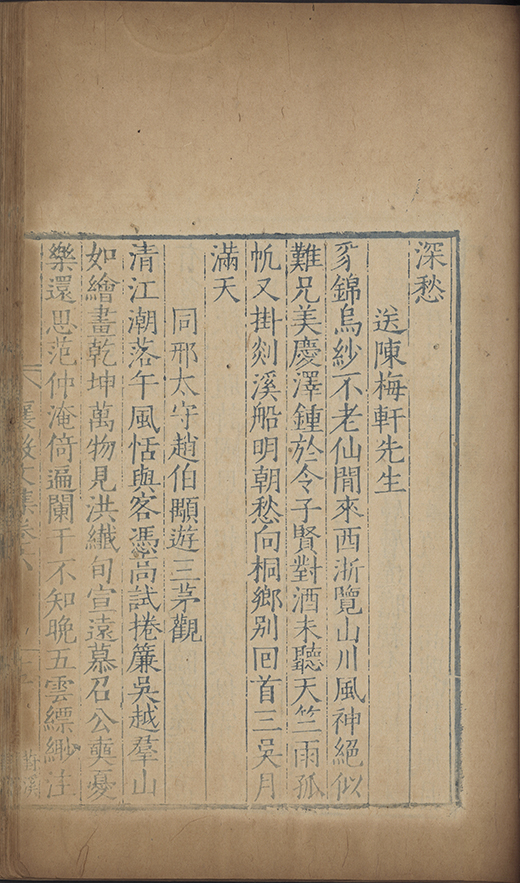 深愁
送陳梅軒先生
豸錦烏紗不老仙閒來西浙覽山川風神絕似
難兄美慶澤鍾於令子賢對酒未聽天竺雨孤
帆又掛剡溪船明朝愁向桐鄉別回首三吳月
滿天
同邢太守趙伯顒遊三茅觀
清江潮落午風恬與客憑高試捲簾吳越羣山
如繪畫乾坤萬物見洪纖旬宣遠慕召公奭憂
樂還思范仲淹倚遍闌干不知晚五雲縹緲注
襄毅文集卷六